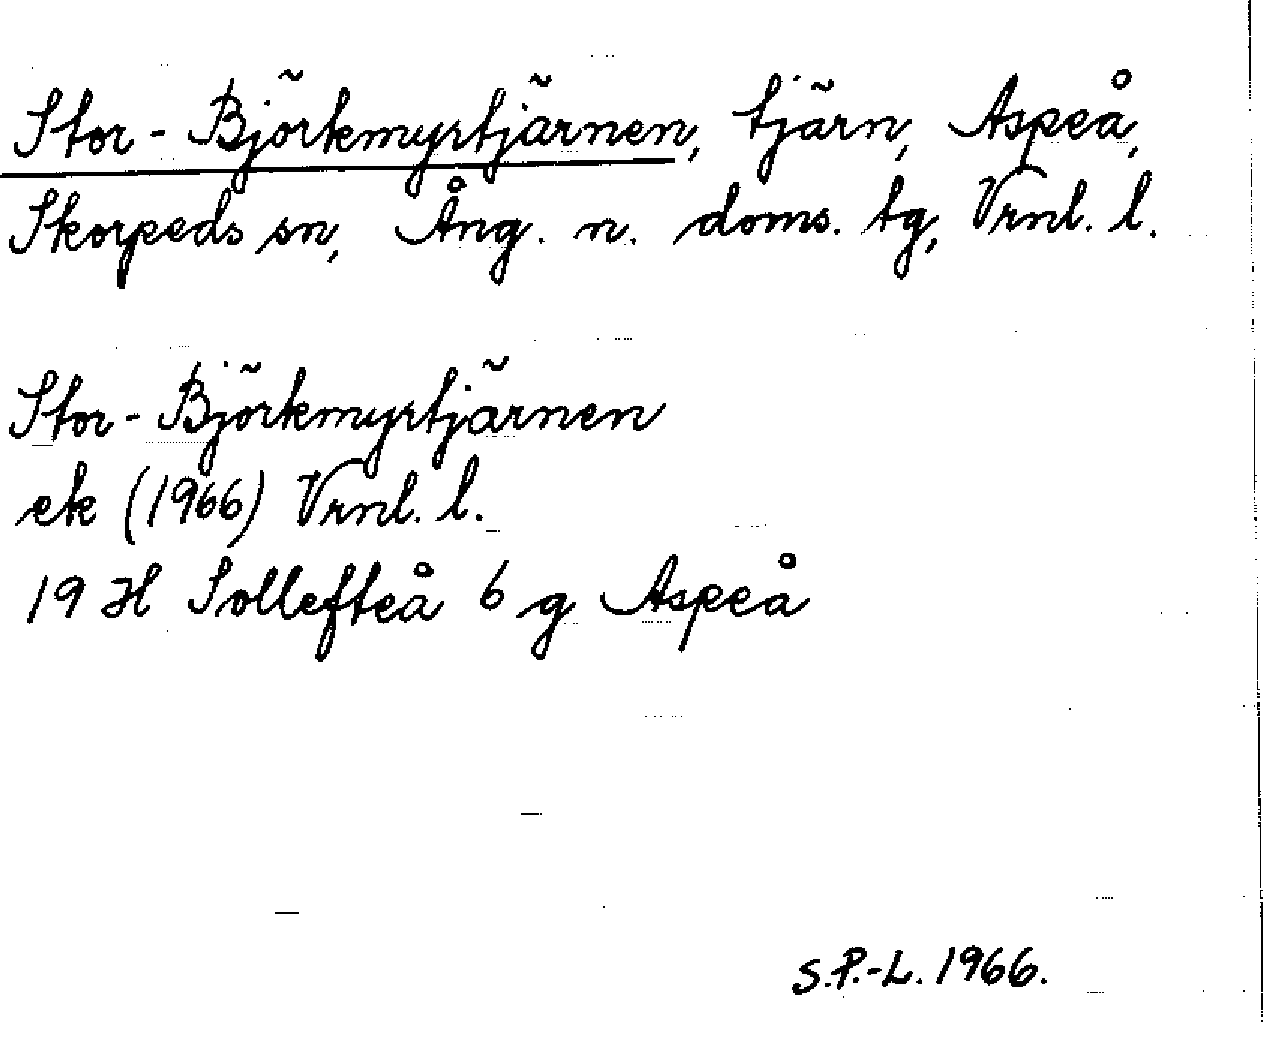 Stor-Björkmyrtjärnen, tjärn, Aspeå,
Skorpeds sn, Ång. n. doms. tg, Vrnl. l.
Stor-Björkmyrtjärnen
ek (1966) Vrnl. l.
19 H Sollefteå 6 g Aspeå
S.P.-L. 1966.